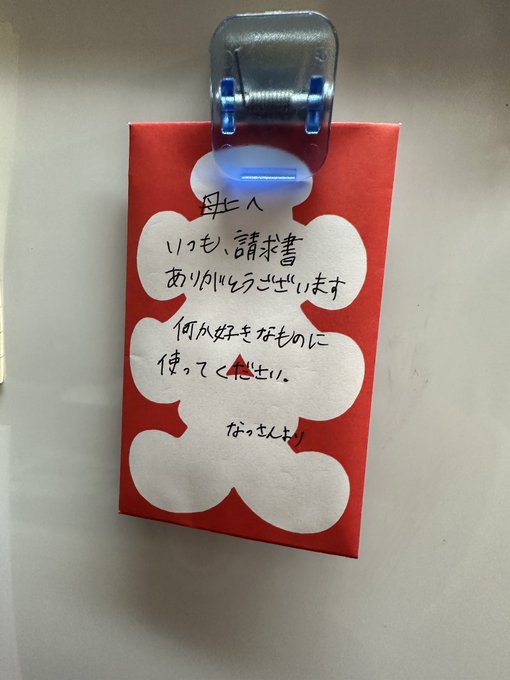 母上へ
いつも、請求書
ありがとうございます
何か好きなものに
使ってください。
なっさんより